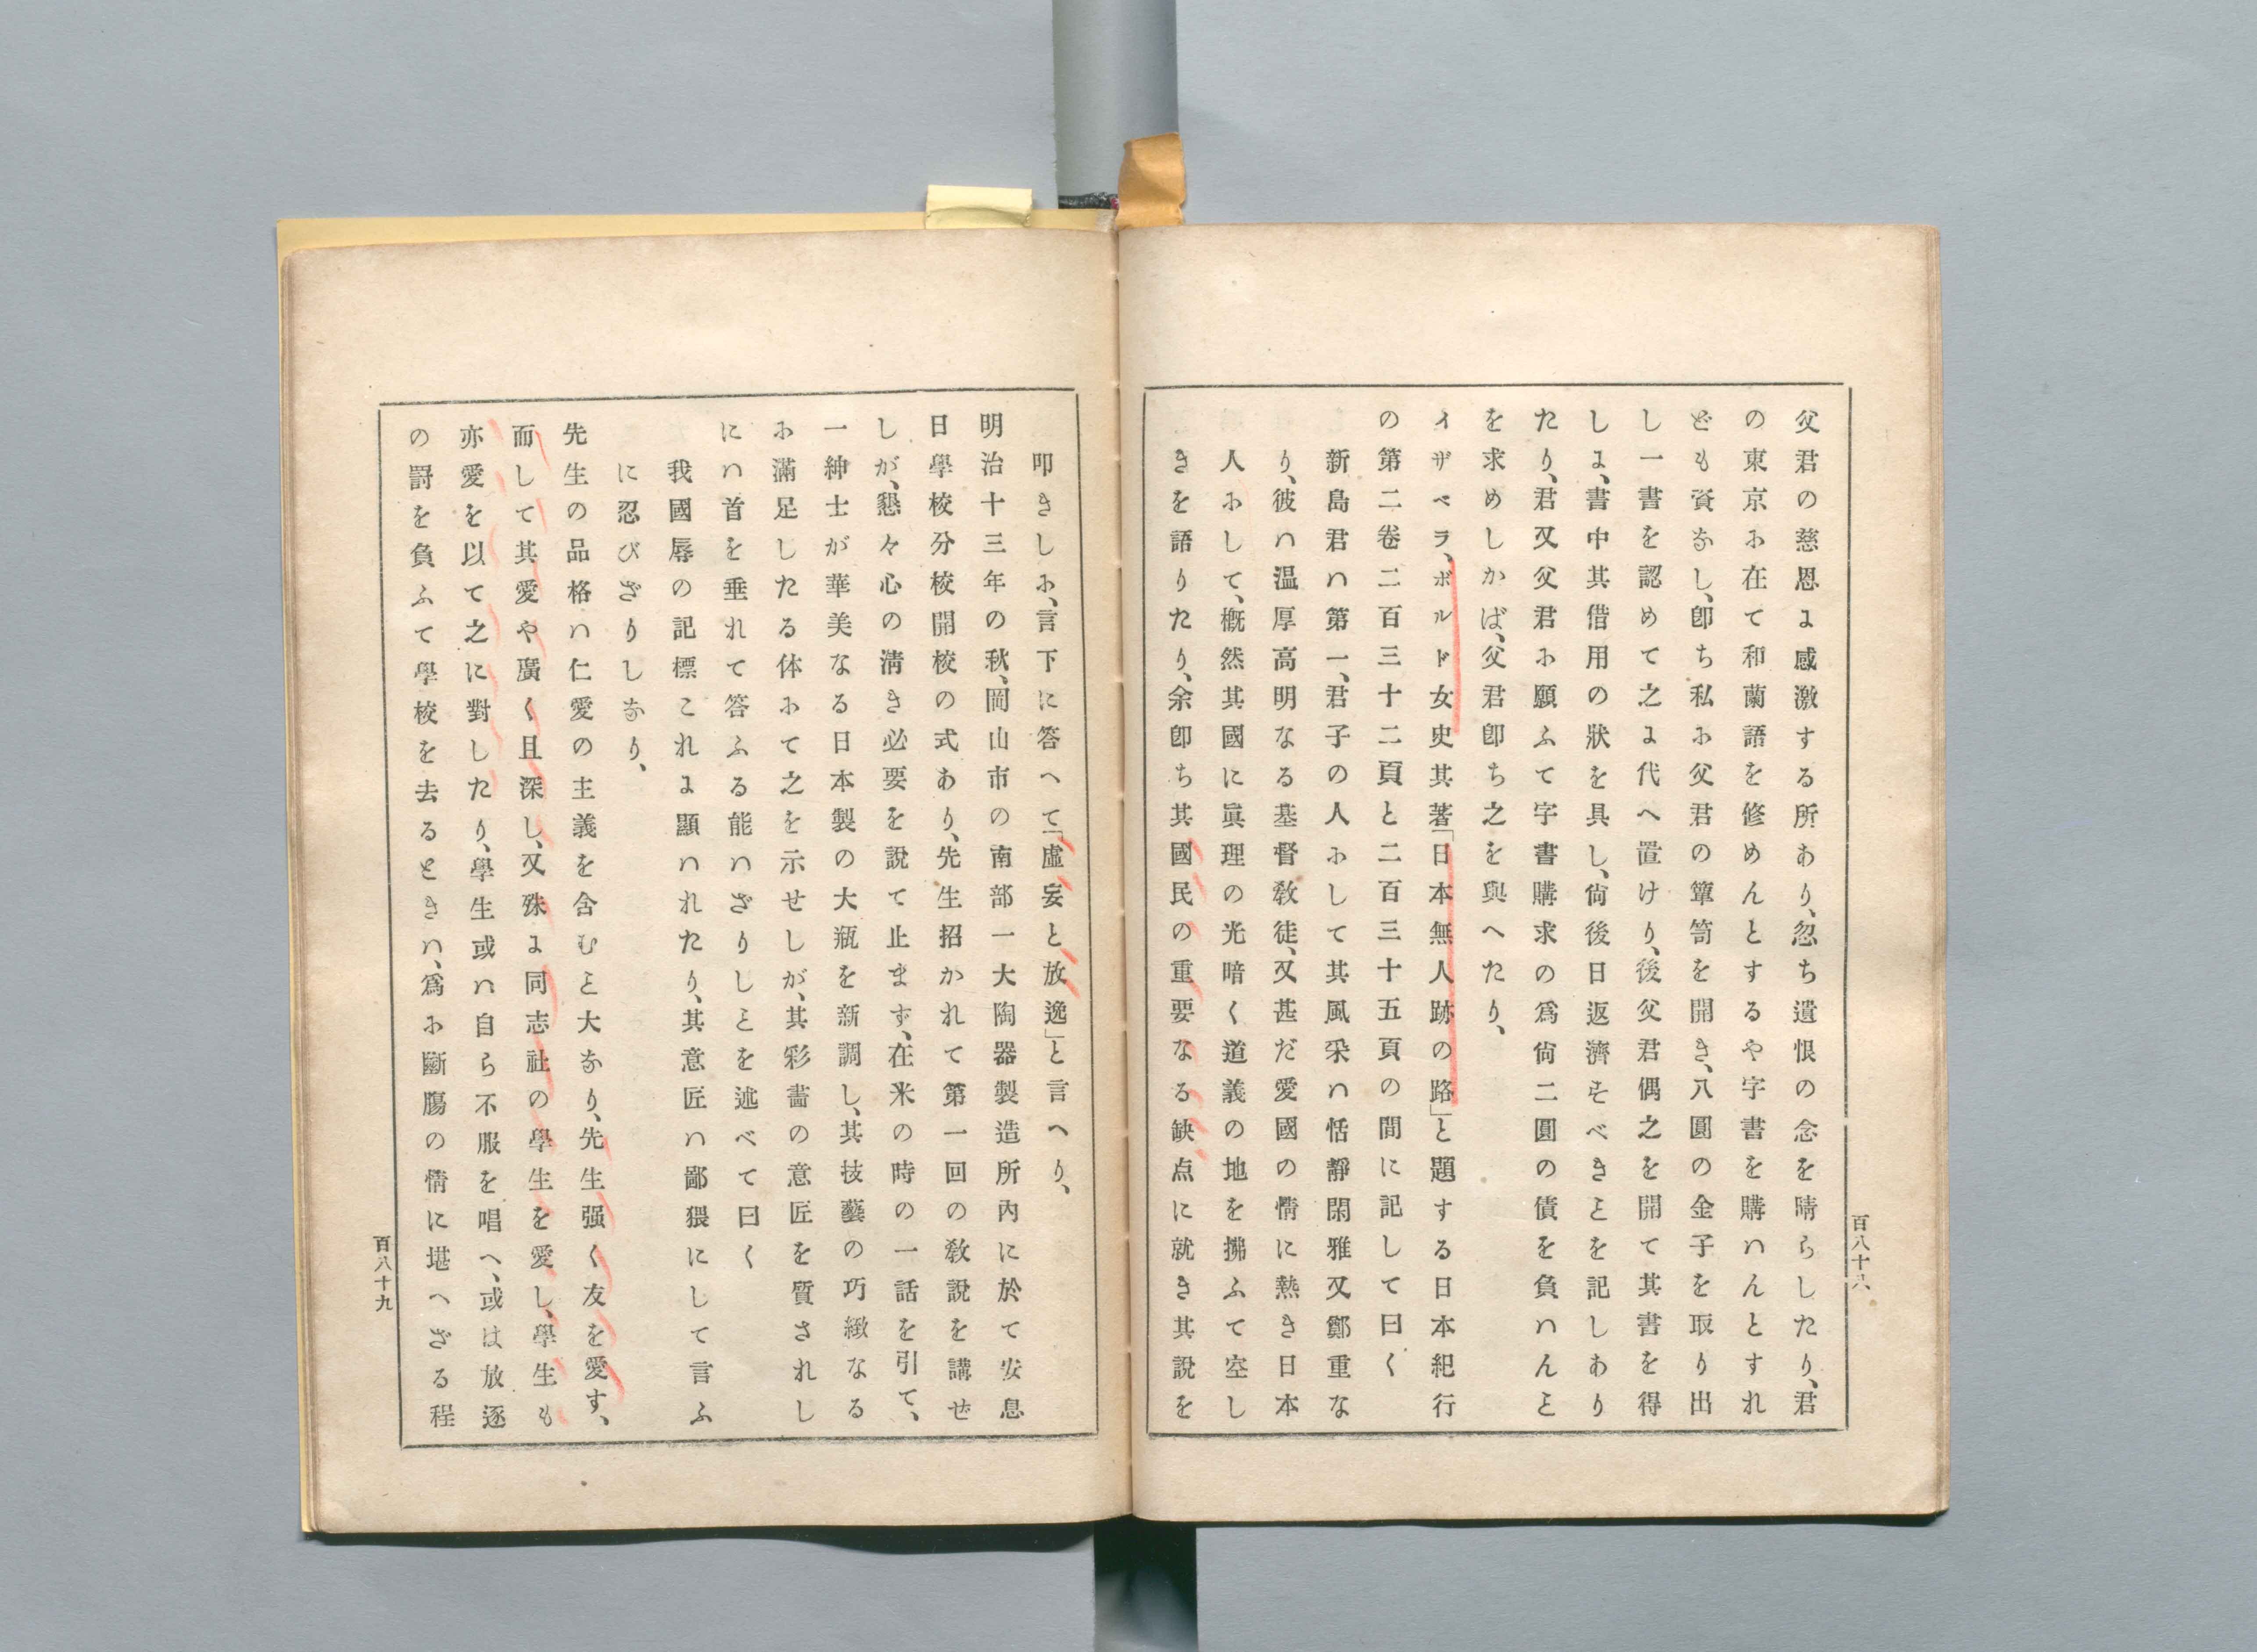 父君の慈恩に感激する所あり、忽ち遺恨の念を晴らしたり、君
の東京に在て和蘭語を修めんとするや字書を購はんとすれ
ども資なし、卽ち私に父君の簞笥を開き、八圓の金子を取り出
し一書を認めて之に代へ置けり、後父君偶之を開て其書を得
しに、書中其借用の狀を具し、尙後日返濟すべきことを記しあり
たり、君又父君に願ふて字書購求の爲尙二圓の債を負はんと
を求めしかば、父君卽ち之を與へたり、
イザベラ、ボルド女史其著「日本無人跡の路」と題する日本紀行
の第二卷二百三十二頁と二百三十五頁の間に記して曰く
新島君は第一、君子の人にして其風采は恬靜閑雅又鄭重な
り、彼は温厚高明なる基督敎徒、又甚だ愛國の情に熱き日本
人にして、槪然其國に眞理の光暗く道義の地を拂ふて空し
きを語りたり、余卽ち其國民の重要なる缺点に就き其說を
百八十八
叩きしに、言下に答へて「虛妄と放逸」と言へり、
明治十三年の秋、岡山市の南部一大陶器製造所內に於て安息
日學校分校開校の式あり、先生招かれて第一回の敎說を講ぜ
しが、懇々心の淸き必要を說て止まず、在米の時の一話を引て、
一紳士が華美なる日本製の大瓶を新調し、其技藝の巧緻なる
に滿足したる体にて之を示せしが、其彩畵の意匠を質されし
には首を垂れて答ふる能はざりしことを述べて曰く
我國辱の記標これに顯はれたり、其意匠は鄙猥にして言ふ
に忍びざりしなり、
先生の品格は仁愛の主義を含むと大なり、先生强く友を愛す、
而して其愛や廣く且深し、又殊に同志社の學生を愛し、學生も
亦愛を以て之に對したり、學生或は自ら不服を唱へ、或は放逐
の罸を負ふて學校を去るときは、爲に斷膓の情に堪へざる程
百八十九